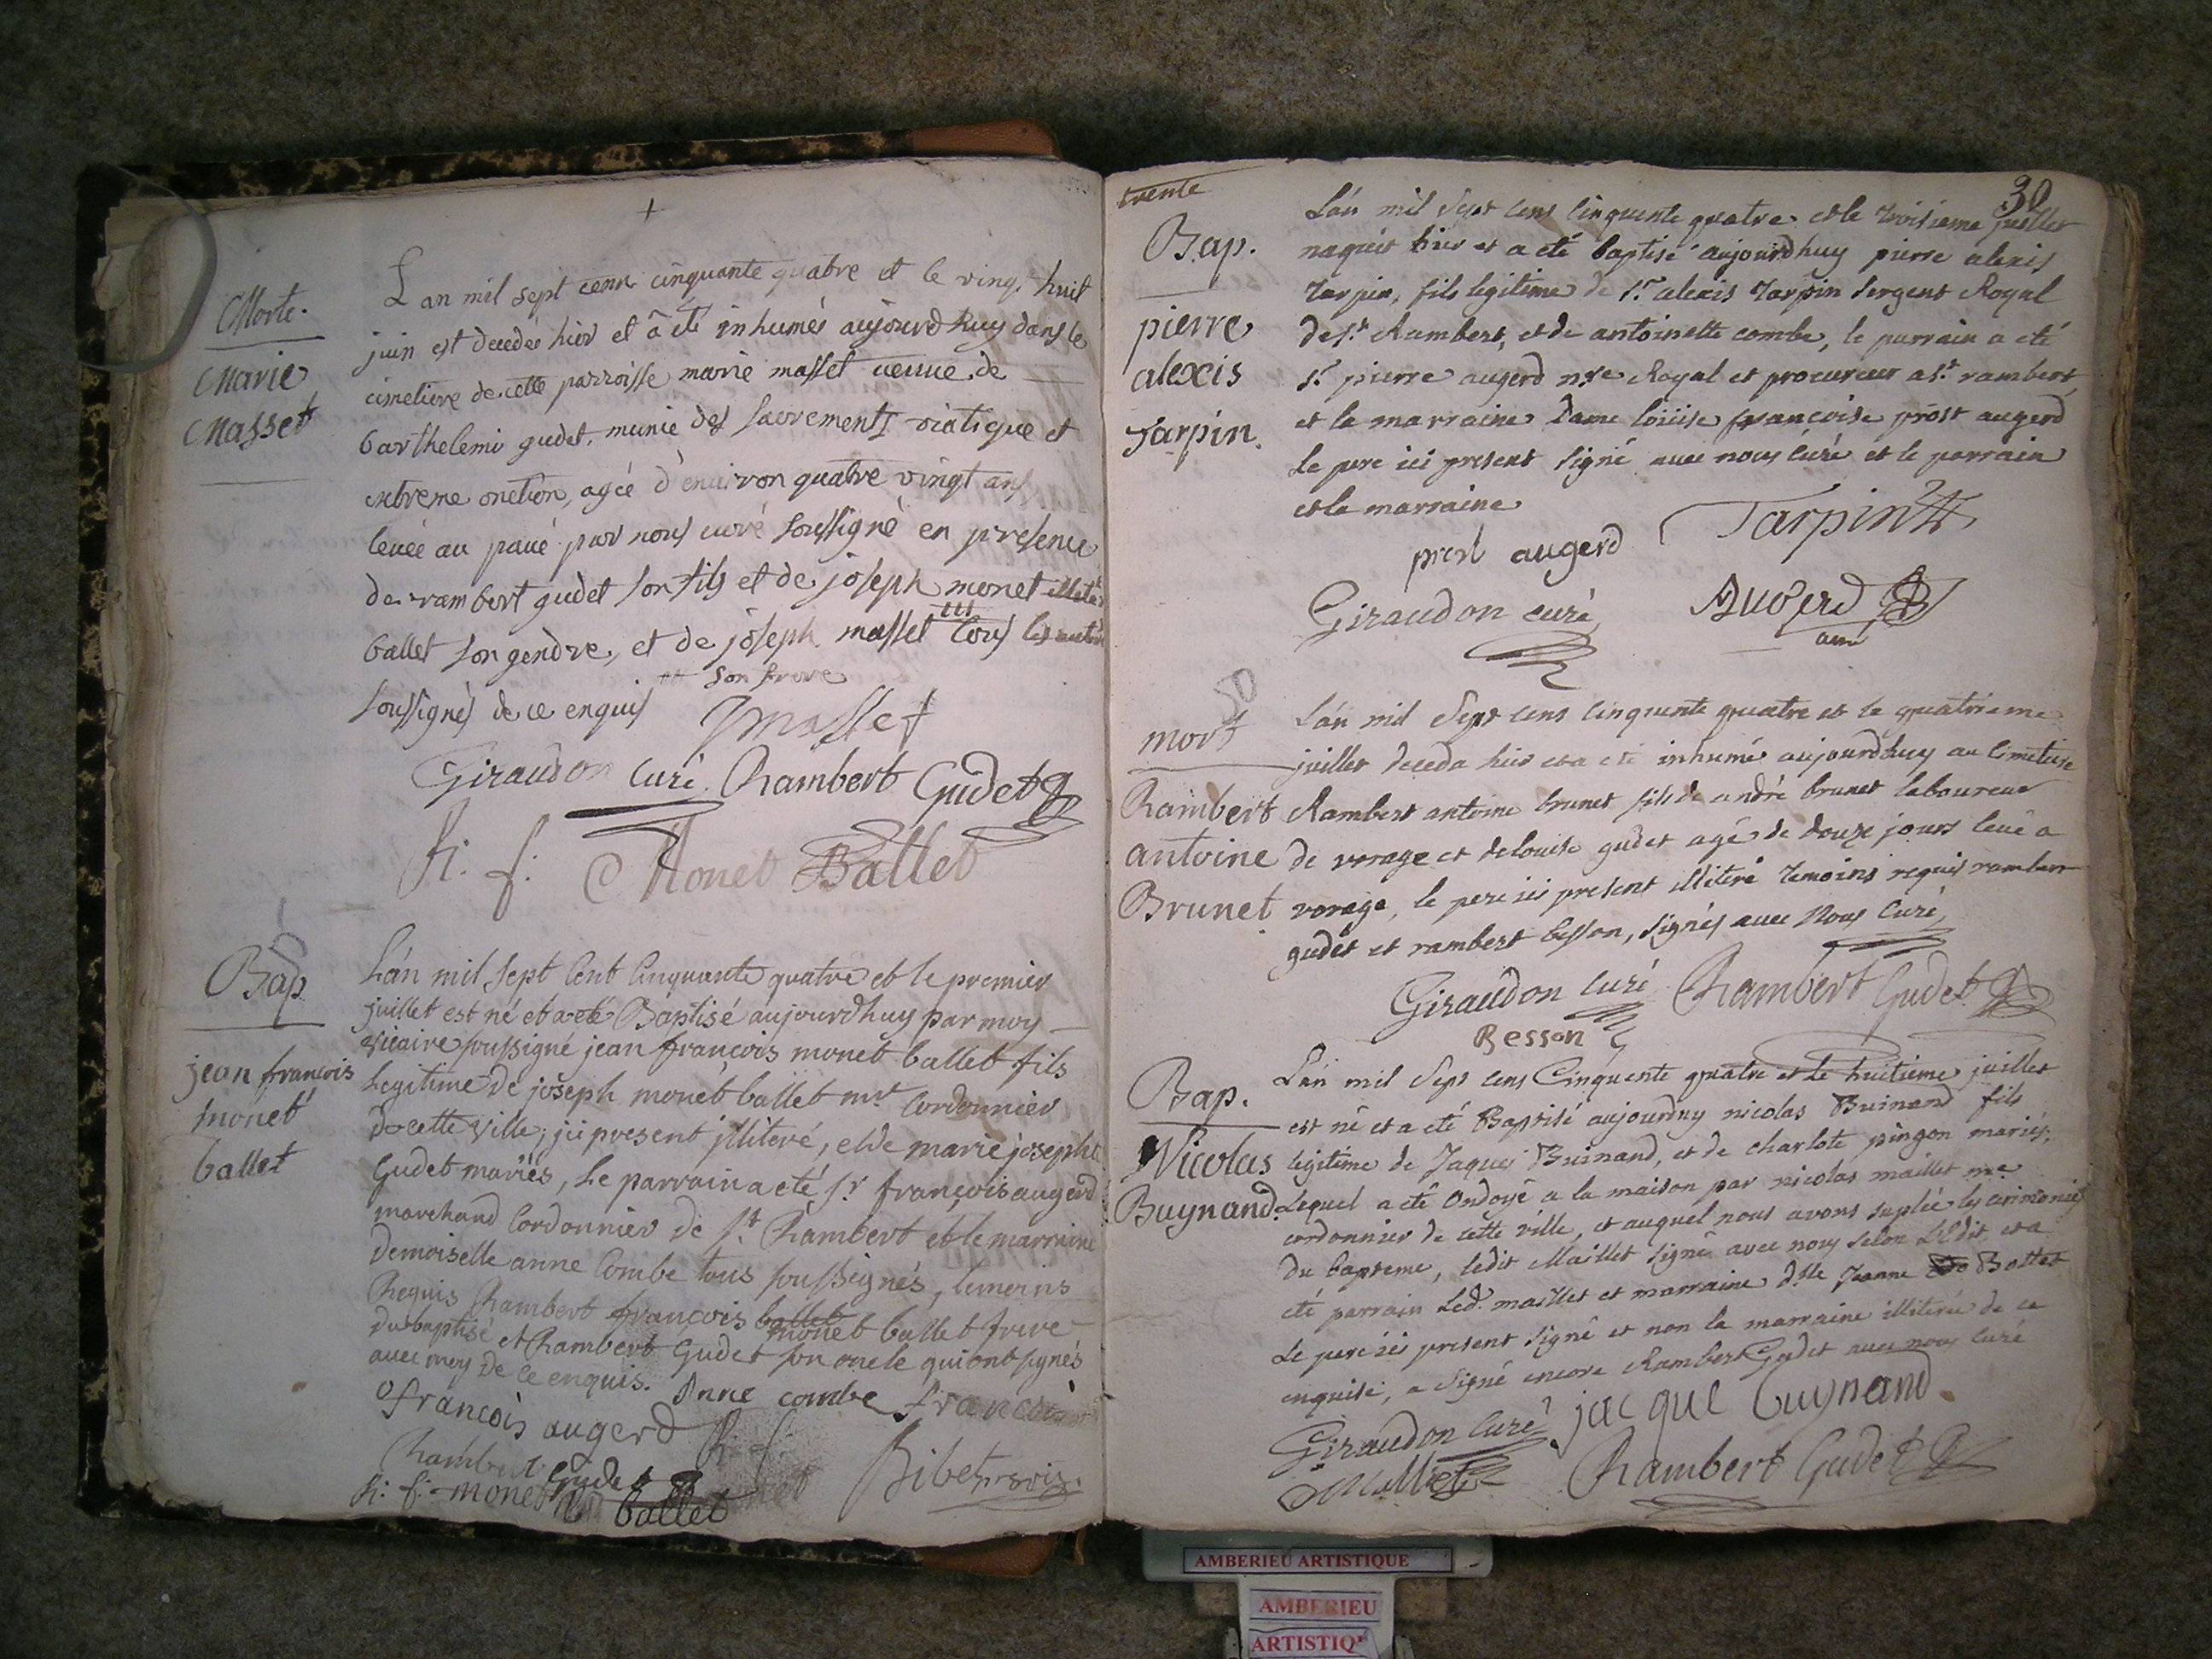 +
Morte.
Marie
Masset
L an mil sept cens cinquante quatre et le vingt huit
juin est decedée hier et â été inhumés aujourd huy dans le
cimetiere de cette parroisse marie masset veuve de
barthelemi gudet, munie des sacrements viatique et
extreme onction, agée d'environ quatre vingt ans
levée au pavé par nous curé soussigné en presence
de rambert gudet son fils et de joseph monet
ballet son gendre, et de joseph masset tous les autres
son frere
soussignés de ce enquis
J masset
Giraudon curé Rambert Gudet
h: f: Monet Ballet
Bap.
jean françois
monet
ballet
L'an mil sept cent cinquante quatre et le premier
juillet est né et a eté Baptisé aujourdhuy par moy
vicaire soussigné jean françois monet ballet fils
Legitime de joseph monet ballet mre cordonnier
de cette ville, ici present jlliteré, et de marie josephe
Gudet mariés, Le parrain a eté sr françois augerd
marchand cordonnier de st Rambert et le marraine
demoiselle anne combe tous soussignés, temoins
Requis Rambert françois ballet
monet ballet frere
du baptisé et Rambert Gudet son oncle qui ont signés
avec moy de ce enquis.
françois augerd Anne combe françois
Rambert Gudet h: f:
h: f: monet ballet
Bibet
trente
30
Bap.
pierre
alexis
Tarpin.
L'an mil sept cens cinquente quatre et le troisieme juillet
naquit hier et a eté baptisé aujourdhuy pierre alexis
tarpin, fils legitime de sr alexis tarpin sergent Royal
de st Rambert, et de antoinette combe, le parrain a eté
sr pierre augerd nre Royal et procureur a st rambert,
et la marraine Dame loüise françoise prost augerd
Le pere ici present signé avec nous curé et le parrain
et la marraine
Tarpin
prost augerd
Giraudon curé
Augerd
50
mort
Rambert
antoine
Brunet
L'an mil sept cens cinquente quatre et le quatrieme
juillet deceda hier et a eté inhumé aujourdhuy au cimetiere
Rambert antoine brunet fils de andré brunet laboureur
de vorage et de louise gudet agé de douze jours levé a
vorage, le pere ici present illiteré temoins requis rambert
gudet et rambert besson, signés avec Nous curé,
Giraudon curé Rambert Gudet
Besson
Bap.
Nicolas
Buynand.
L'an mil sept cens Cinquente quatre et le huitieme juillet
est né et a eté Baptisé aujourdhuy nicolas Buinand fils
legitime de Jaques Buinand, et de charlote pingon mariés,
Lequel a eté Ondoyé a la maison par nicolas maillet me
cordonnier de cette ville, et auquel nous avons suplée les cerimonies
du bapteme, ledit Maillet signé avec nous selon L'Edit, et a
eté parrain Led. maillet et marraine dlle Jeanne Bottet
Le pere ici present signé et non la marraine illiterée de ce
enquise, a signé encore Rambert Gudet avec nous curé
Giraudon curé jacque Buynand.
Rambert Gudet
AMBERIEU ARTISTIQUE
AMBERIEU
ARTISTIQ